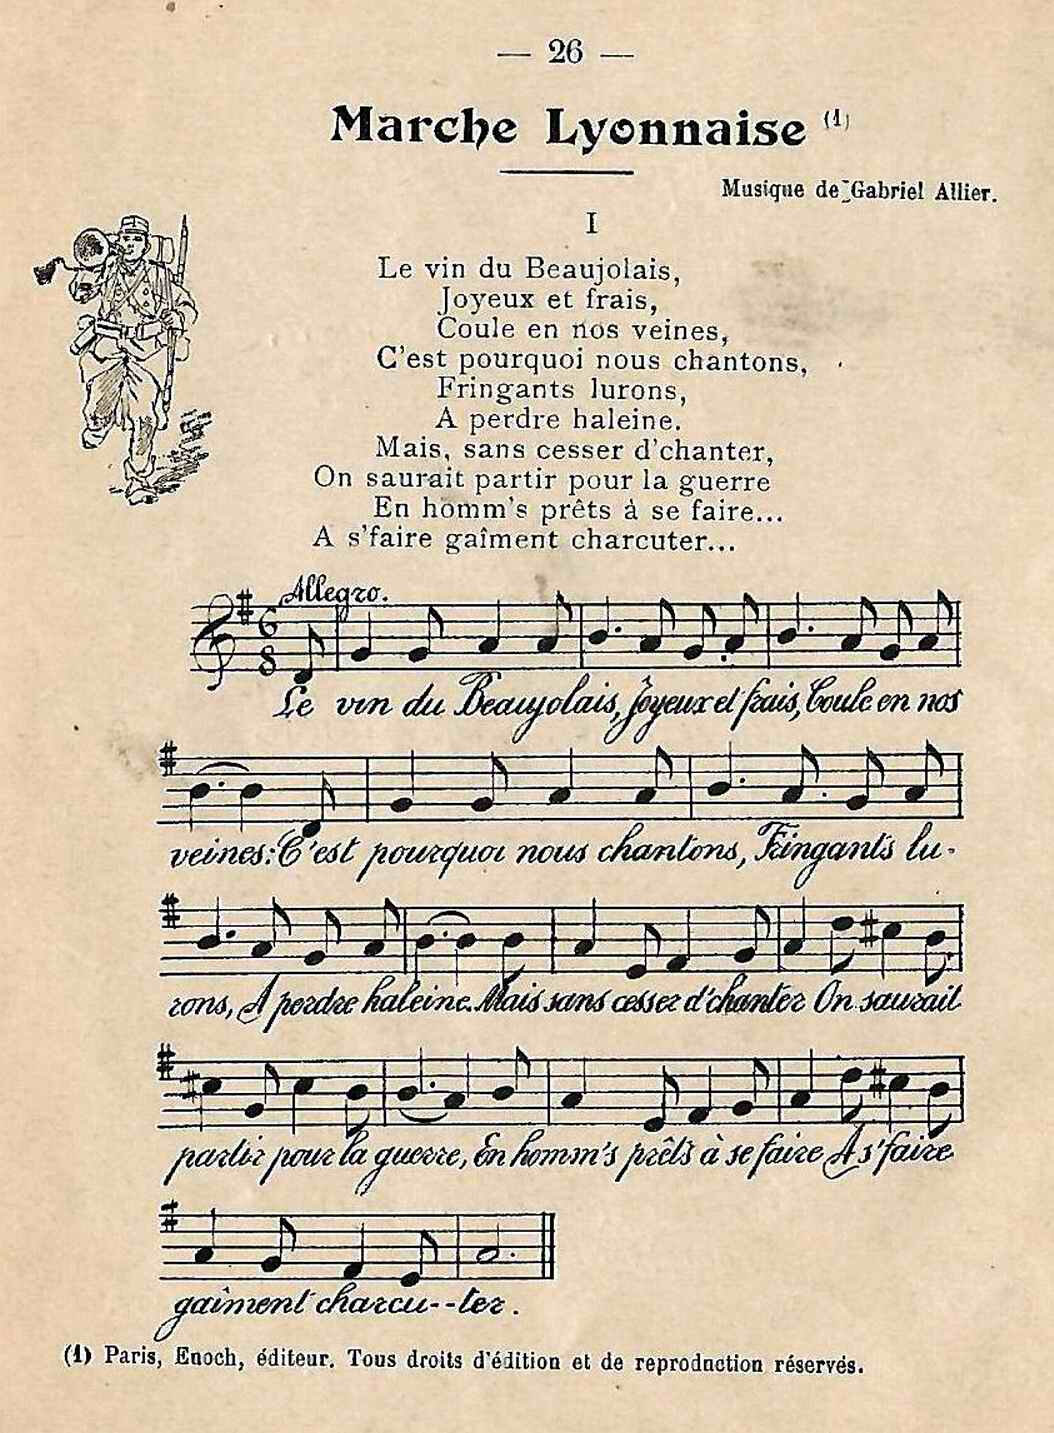 — 26 —
Marche Lyonnaise (1)
Musique de Gabriel Allier.
I
Le vin du Beaujolais,
Joyeux et frais,
Coule en nos veines,
C'est pourquoi nous chantons,
Fringants lurons,
A perdre haleine.
Mais, sans cesser d'chanter,
On saurait partir pour la guerre
En homm's prêts à se faire...
A s'faire gaîment charcuter...
Allegro.
6
8
Le vin du Beaujolais, Joyeux et frais, Coule en nos
veines: C'est pourquoi nous chantons, Fringants lu-
rons, A perdre haleine. Mais sans cesser d'chanter On saurait
partir pour la guerre, En homm's prêts à se faire A s'faire
gaîment charcu--ter.
(1) Paris, Enoch, éditeur. Tous droits d'édition et de reproduction réservés.